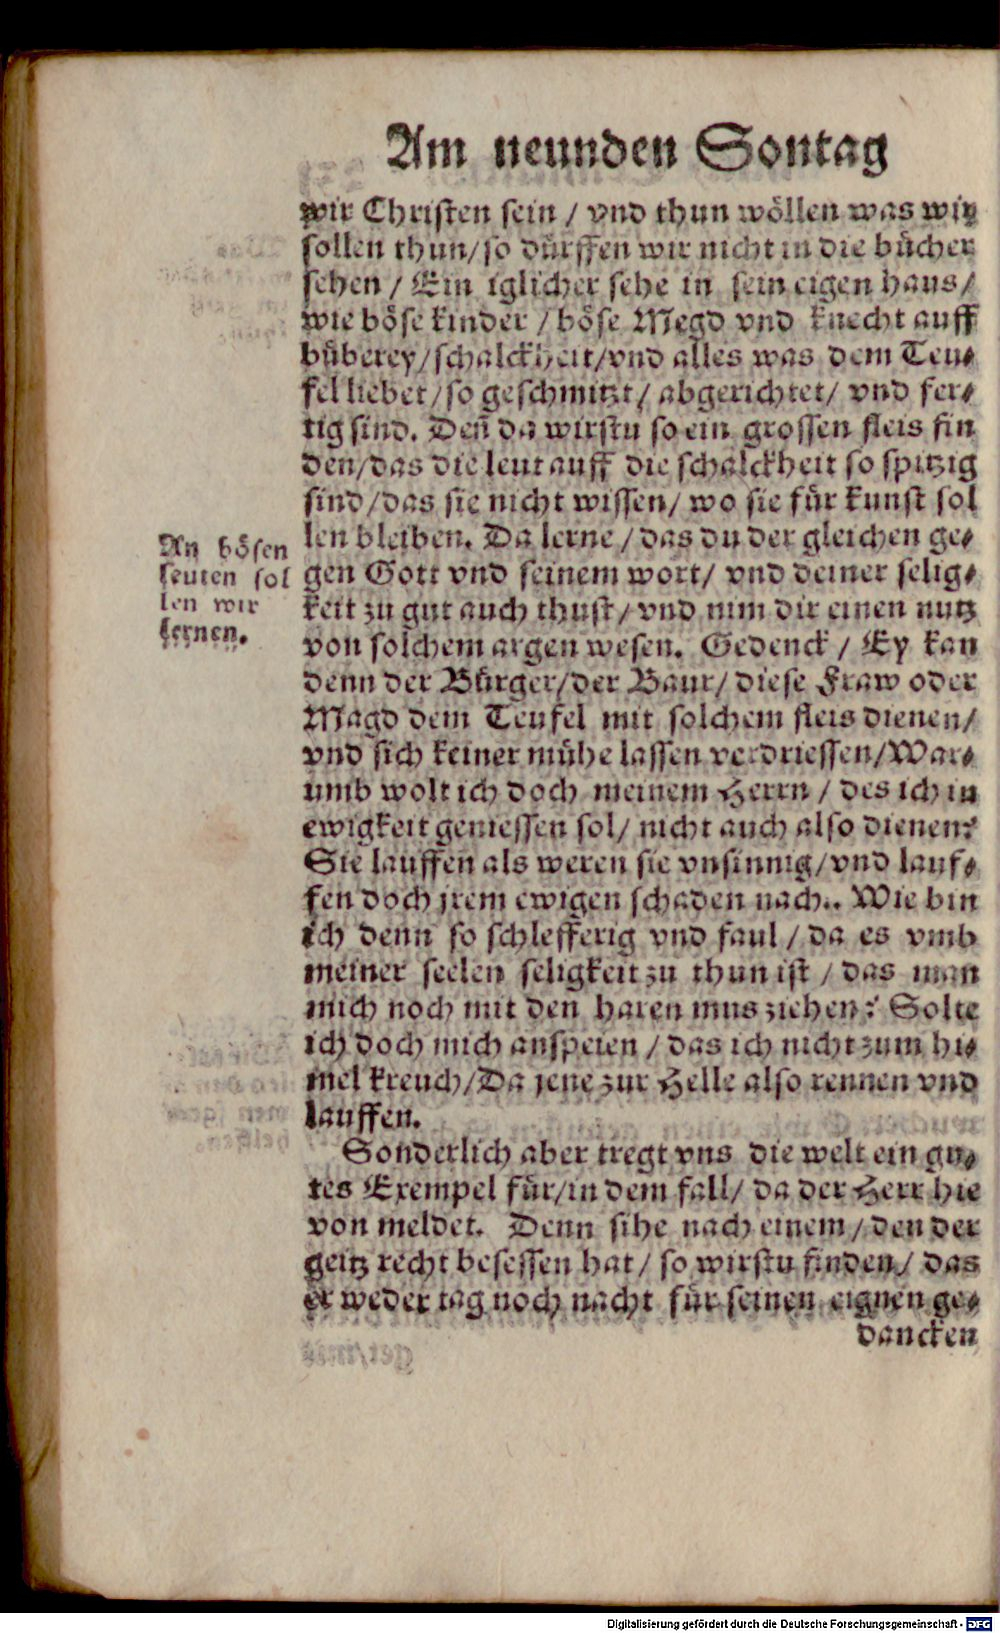 Am neunden Sontag
wir Christen sein / vnd thun wöllen was wir
sollen thun/so dürffen wir nicht in die bücher
sehen / Ein iglicher sehe in sein eigen haus/
wie böse kinder / böse Megd vnd knecht auff
büberey/schalckheit/vnd alles was dem Teu-
fel liebet/so geschmitzt/ abgerichtet/ vnd fer-
tig sind. Deñ da wirstu so ein grossen fleis fin
den/das die leut auff die schalckheit so spitzig
sind/das sie nicht wissen/ wo sie für kunst sol
len bleiben. Da lerne / das du der gleichen ge-
gen Gott vnd seinem wort/ vnd deiner selig-
keit zu gut auch thust/vnd nim dir einen nutz
von solchem argen wesen. Gedenck / Ey kan
denn der Bürger/der Baur/ diese Fraw oder
Magd dem Teufel mit solchem fleis dienen/
vnd sich keiner mühe lassen verdriessen/War-
umb wolt ich doch meinem Herrn / des ich in
ewigkeit geniessen sol/ nicht auch also dienen?
Sie lauffen als weren sie vnsinnig/vnd lauf-
fen doch jrem ewigen schaden nach.. Wie bin
ich denn so schlefferig vnd faul / da es vmb
meiner seelen seligkeit zu thun ist / das man
mich noch mit den haren mus ziehen? Solte
ich doch mich anspeien / das ich nicht zum hi-
mel kreuch/Da jene zur Helle also rennen vnd
lauffen.
Sonderlich aber tregt vns die welt ein gu-
tes Exempel für/in dem fall/ da der Herr hie
von meldet. Denn sihe nach einem / den der
geitz recht besessen hat / so wirstu finden / das
er weder tag noch nacht für seinen eignen ge-
dancken
An bösen
leuten sol
len wir
lernen.
Digitalisierung gefördert durch die Deutsche Forschungsgemeinschaft - DFG